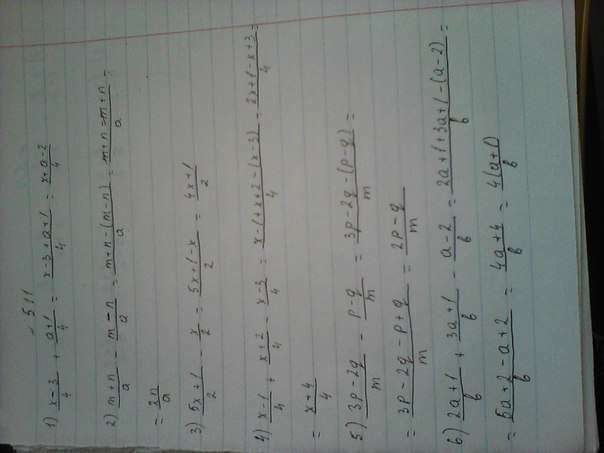 № 511
1) (x-3)/4 + (a+1)/4 = (x-3+a+1)/4 = (x+a-2)/4
2) (m+n)/a - (m-n)/a = (m+n-(m-n))/a = (m+n-m+n)/a =
= 2n/a
3) (5x+1)/2 - x/2 = (5x+1-x)/2 = (4x+1)/2
4) (x-1)/4 + (x+2)/4 - (x-3)/4 = (x-1+x+2-(x-3))/4 = (2x+1-x+3)/4 =
= (x+4)/4
5) (3p-2q)/m - (p-q)/m = (3p-2q-(p-q))/m =
= (3p-2q-p+q)/m = (2p-q)/m
6) (2a+1)/b + (3a+1)/b - (a-2)/b = (2a+1+3a+1-(a-2))/b =
= (5a+2-a+2)/b = (4a+4)/b = 4(a+1)/b